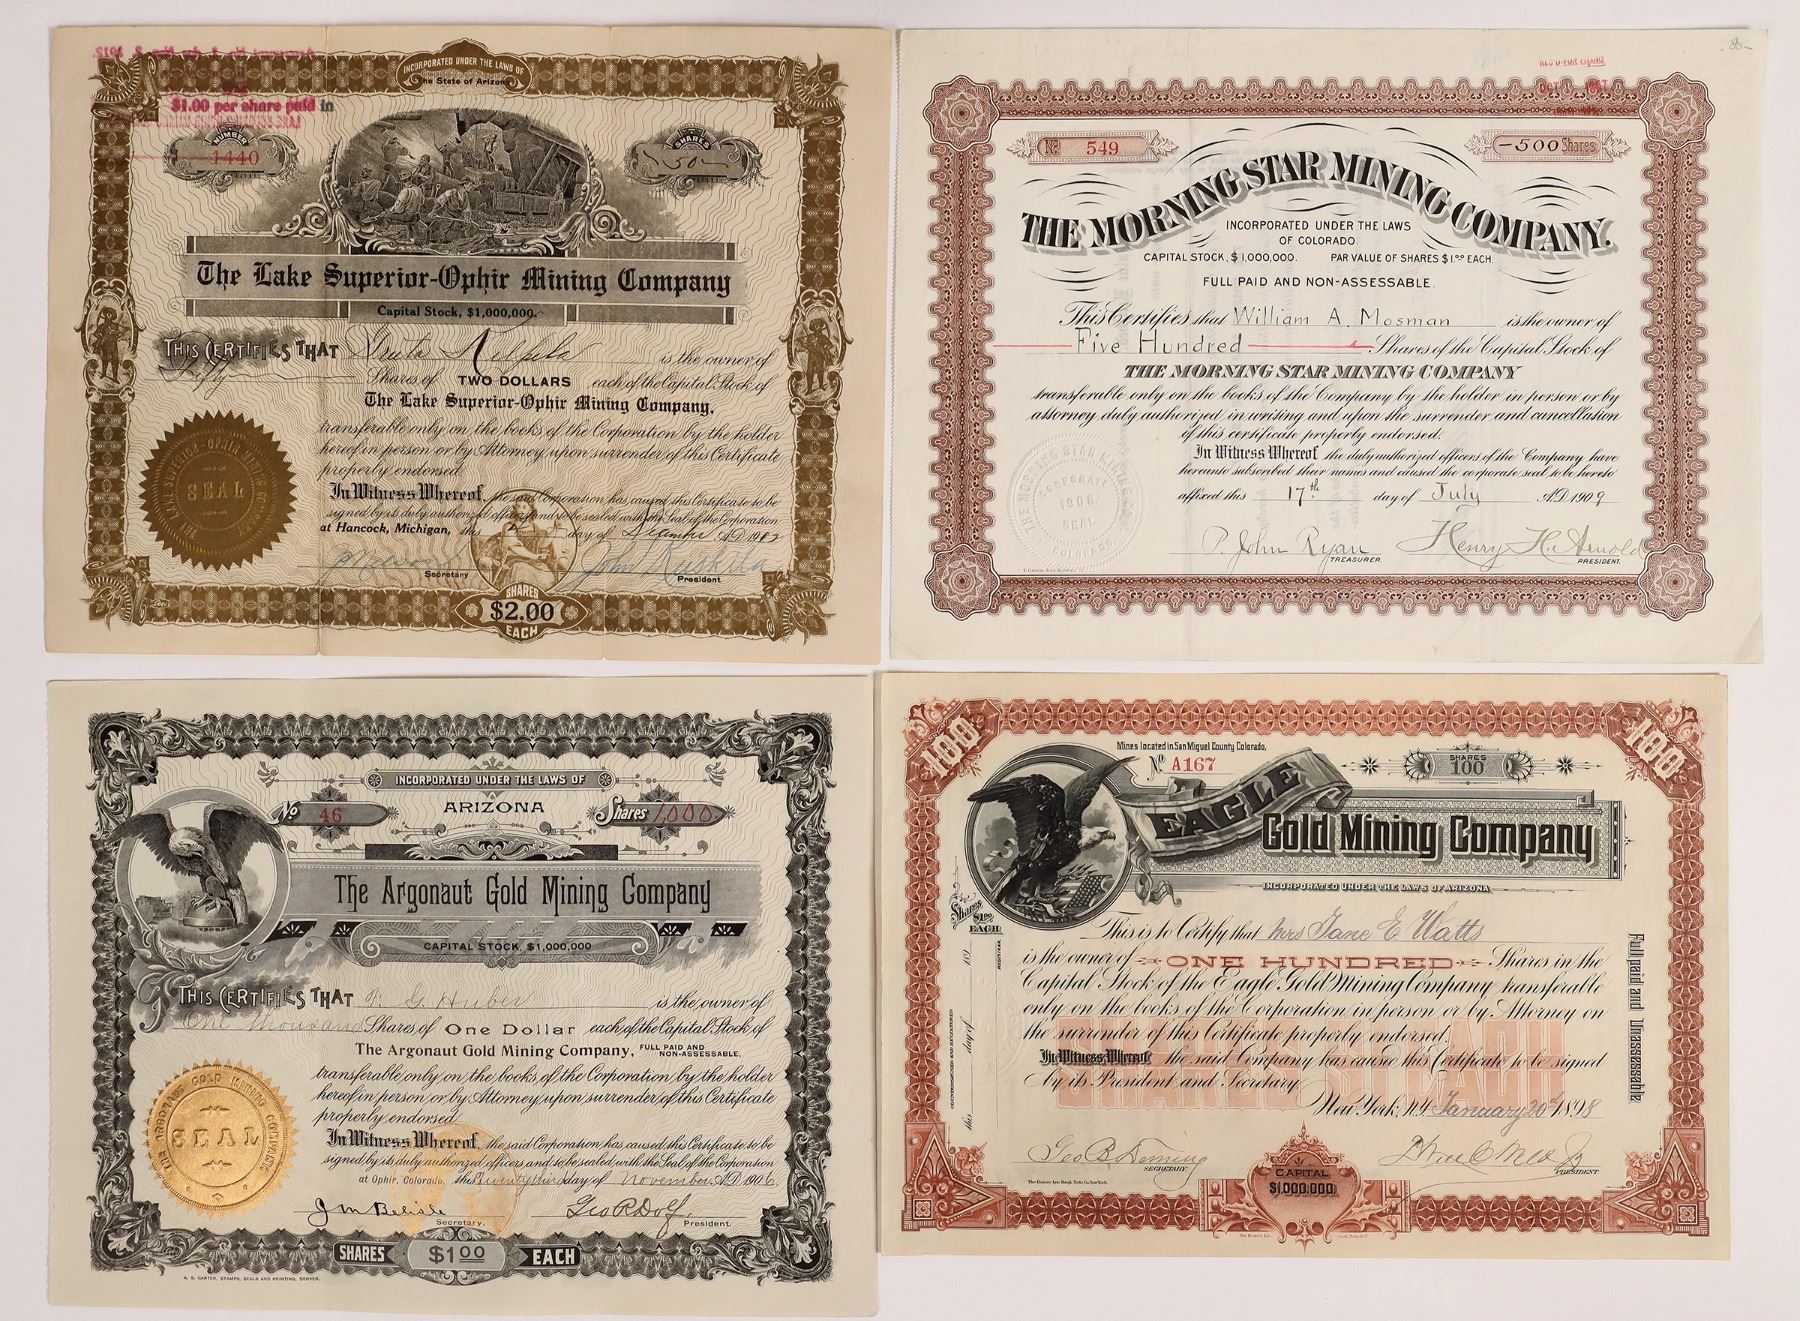 INCORPORATED UNDER THE LAWS OF
the State of Arizona
$1.00 per share paid in
NUMBER
1440
SHARES
50
The Lake Superior-Ophir Mining Company
Capital Stock, $1,000,000.
THIS CERTIFIES THAT is the owner of
Fifty Shares of TWO DOLLARS each of the Capital Stock of
The Lake Superior-Ophir Mining Company,
transferable only on the books of the Corporation by the holder
hereof in person or by Attorney upon surrender of this Certificate
properly endorsed.
In Witness Whereof, the said Corporation has caused this Certificate to be
signed by its duly authorized officers and to be sealed with the Seal of the Corporation
at Hancock, Michigan, this day of A.D. 1912
John Ruskila
Secretary President
SEAL
SHARES
$2.00
EACH
REC'D FOR FILING
No. 549
-500 Shares
THE MORNING STAR MINING COMPANY.
INCORPORATED UNDER THE LAWS
OF COLORADO.
CAPITAL STOCK, $1,000,000. PAR VALUE OF SHARES $1.00 EACH.
FULL PAID AND NON-ASSESSABLE.
This Certifies that William A. Mosman is the owner of
Five Hundred Shares of the Capital Stock of
THE MORNING STAR MINING COMPANY
transferable only on the books of the Company by the holder in person or by
attorney duly authorized in writing and upon the surrender and cancellation
of this certificate properly endorsed.
In Witness Whereof the duly authorized officers of the Company have
hereunto subscribed their names and caused the corporate seal to be hereto
affixed this 17th day of July A.D. 1909
THE MORNING STAR MINING COM.
CORPORATE
1906.
SEAL
COLORADO.
P. John Ryan Henry H. Arnold
TREASURER. PRESIDENT.
INCORPORATED UNDER THE LAWS OF
ARIZONA
No 46
Shares 1,000
The Argonaut Gold Mining Company
CAPITAL STOCK, $1,000,000
THIS CERTIFIES THAT G. Huber is the owner of
One thousand Shares of One Dollar each of the Capital Stock of
The Argonaut Gold Mining Company, FULL PAID AND NON-ASSESSABLE,
transferable only on the books of the Corporation by the holder
hereof in person or by Attorney upon surrender of this Certificate
properly endorsed.
In Witness Whereof, the said Corporation has caused this Certificate to be
signed by its duly authorized officers and to be sealed with the Seal of the Corporation
at Ophir, Colorado, this Twenty third day of November A.D. 1906.
THE ARGONAUT GOLD MINING COMPANY
SEAL
J M Belisle Geo R Dolf.
Secretary. President.
SHARES $1.00 EACH
A. S. CARTER, STAMPS, SEALS AND PRINTING, DENVER.
100 100
Mines located in San Miguel County Colorado.
No A167
SHARES
100
EAGLE
Gold Mining Company
INCORPORATED UNDER THE LAWS OF ARIZONA
Shares
$1.00
EACH
This is to Certify that Mrs Jane E Watts
is the owner of ONE HUNDRED Shares in the
Capital Stock of the Eagle Gold Mining Company transferable
only on the books of the Corporation in person or by Attorney on
the surrender of this Certificate properly endorsed.
In Witness Whereof the said Company has caused this Certificate to be signed
by its President and Secretary.
SHARES $1 EACH
New York, N.Y. January 20th 1898
Geo B Deming
SECRETARY. PRESIDENT
CAPITAL
$1,000,000.
Full paid and Unassessable
COUNTERSIGNED AND REGISTERED
this day of 189
REGISTRAR.